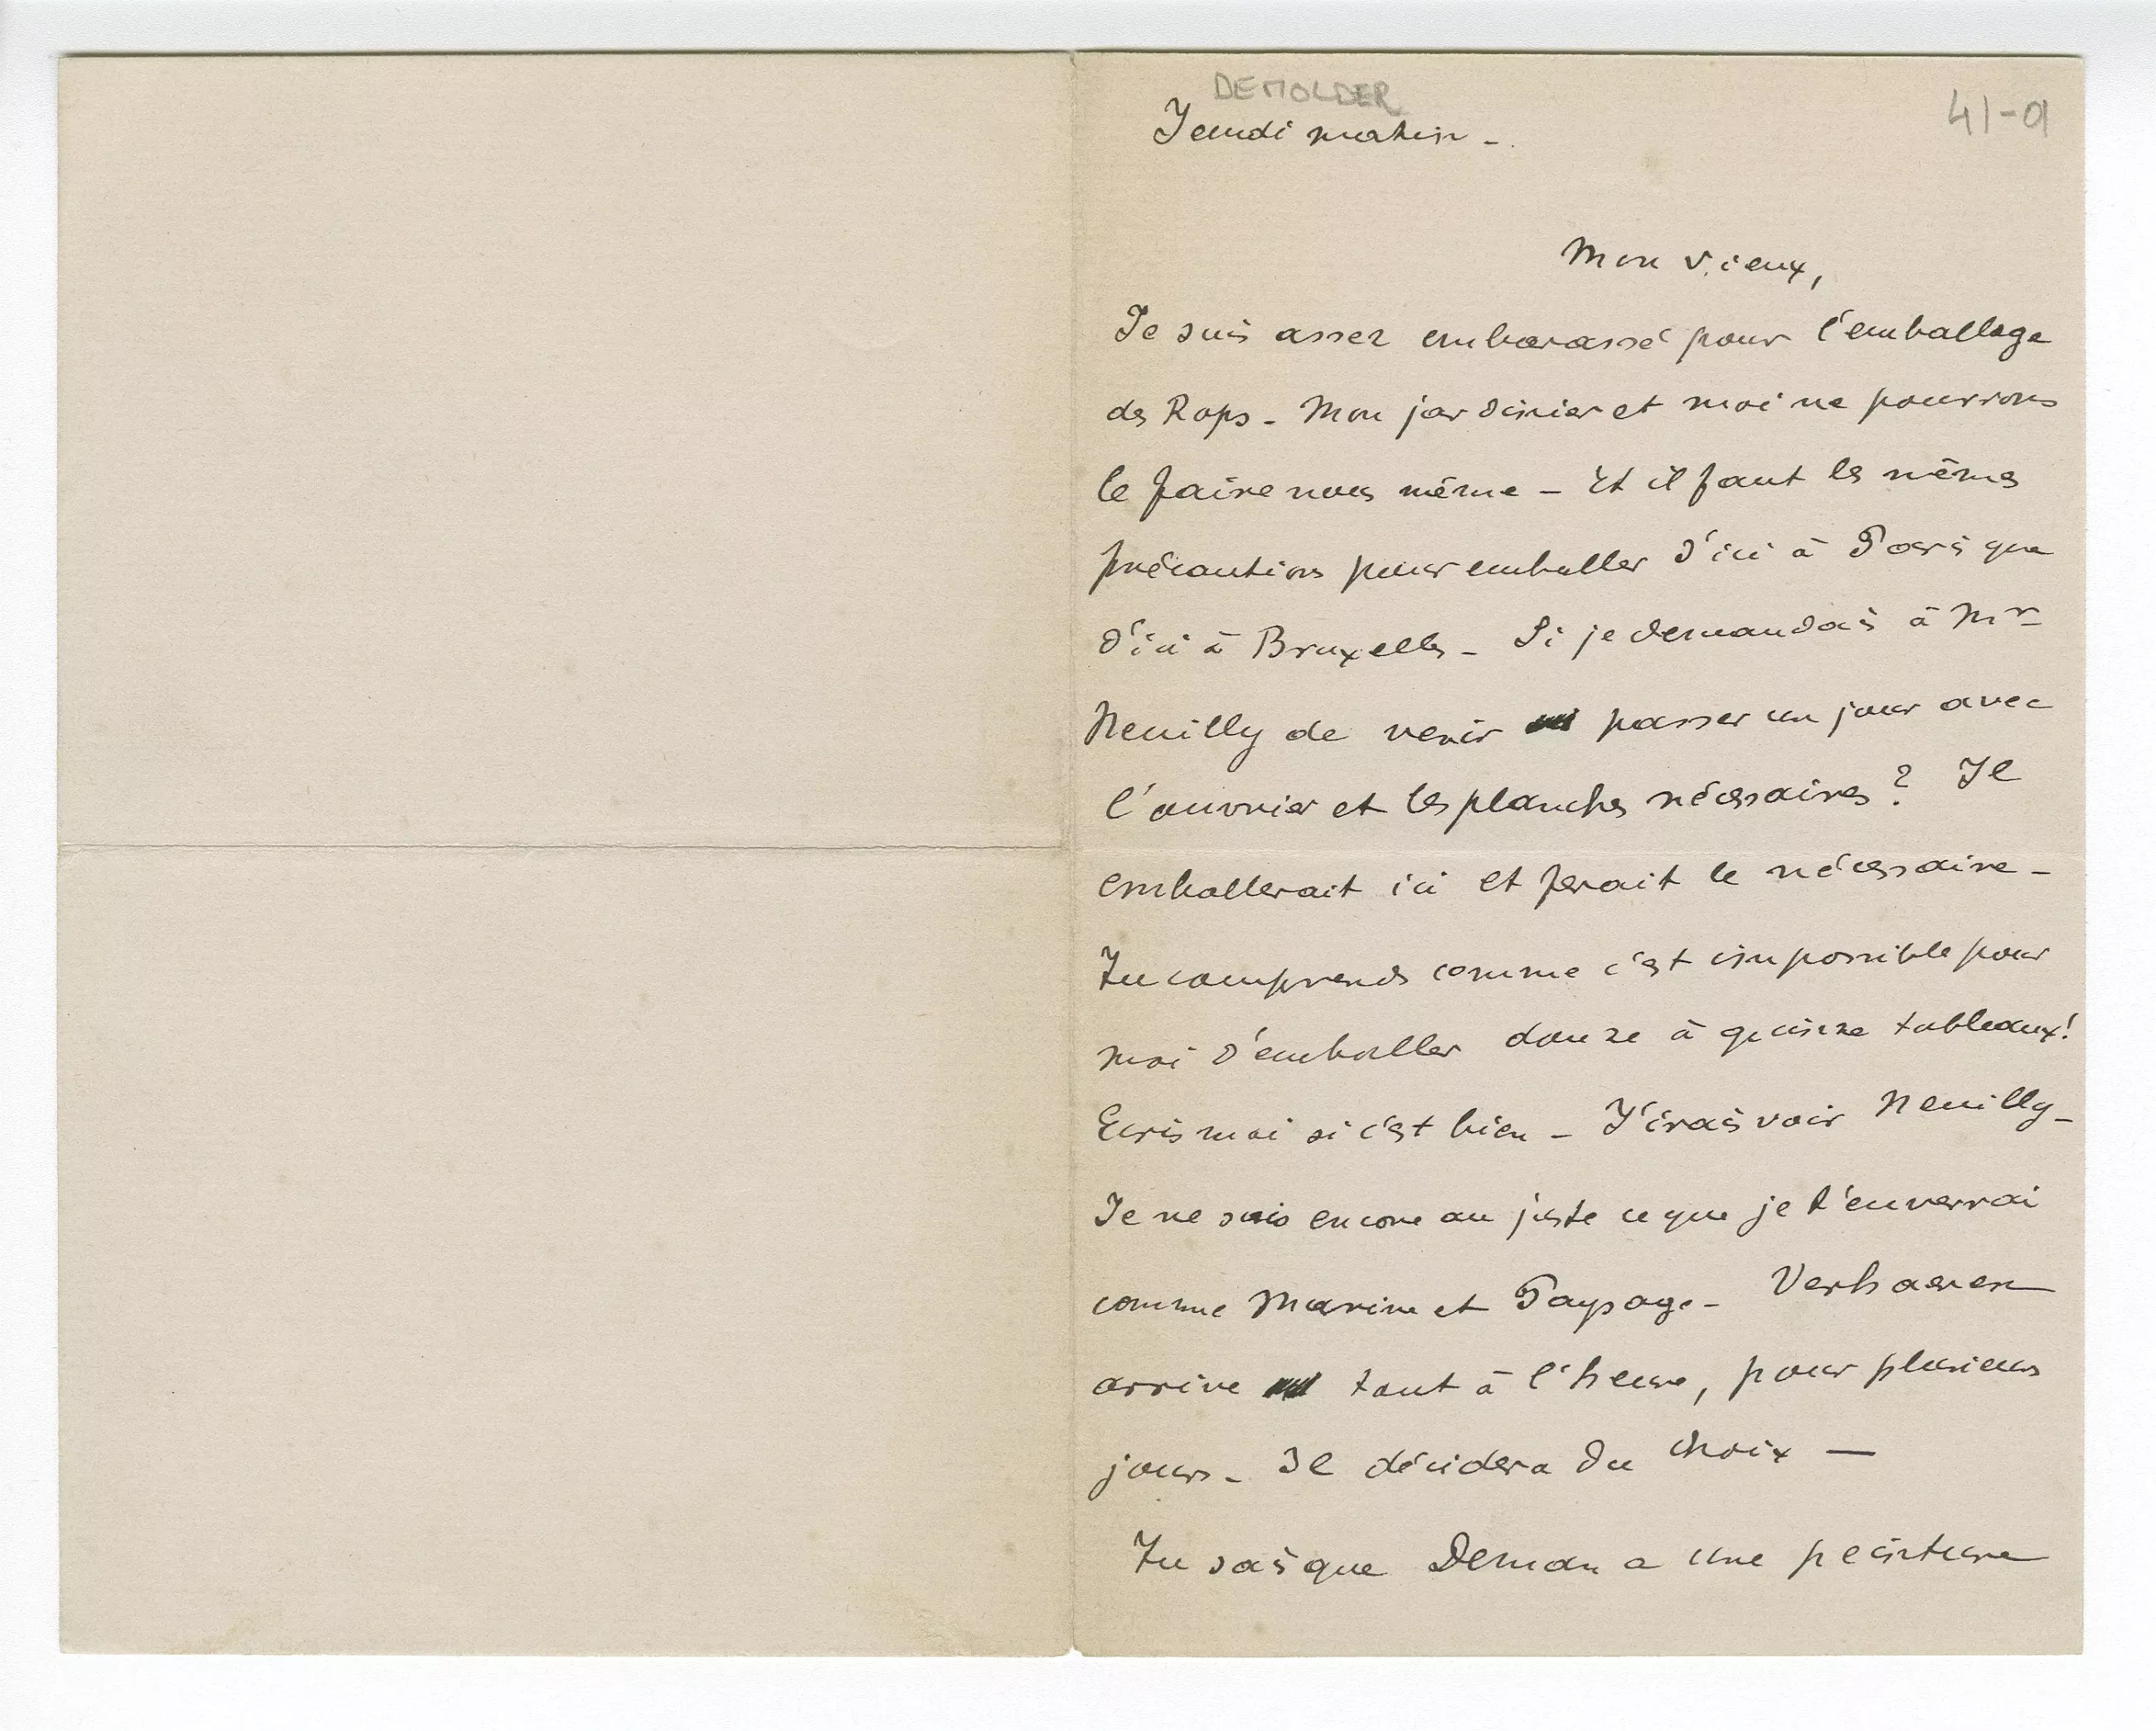 DEMOLDER
41-9
Jeudi matin -
Mon vieux,
Je suis assez embarassé pour l'emballage
des Rops - Mon jardinier et moi ne pourrons
le faire nous même - Et il faut les mêmes
précautions pour emballer d'ici à Paris que
d'ici à Bruxelles - Si je demandais à Mr
Neuilly de venir passer un jour avec
l'ouvrier et les planches nécessaires ? Il
emballerait ici et ferait le nécessaire -
Tu comprends comme c'est impossible pour
moi d'emballer douze à quinze tableaux !
Ecris moi si c'est bien - J'irais voir Neuilly -
Je ne sais encore au juste ce que je t'enverrai
comme Marine et Paysage - Verhaeren
arrive tout à l'heure, pour plusieurs
jours - Il décidera du choix —
Tu sais que Deman a une peinture